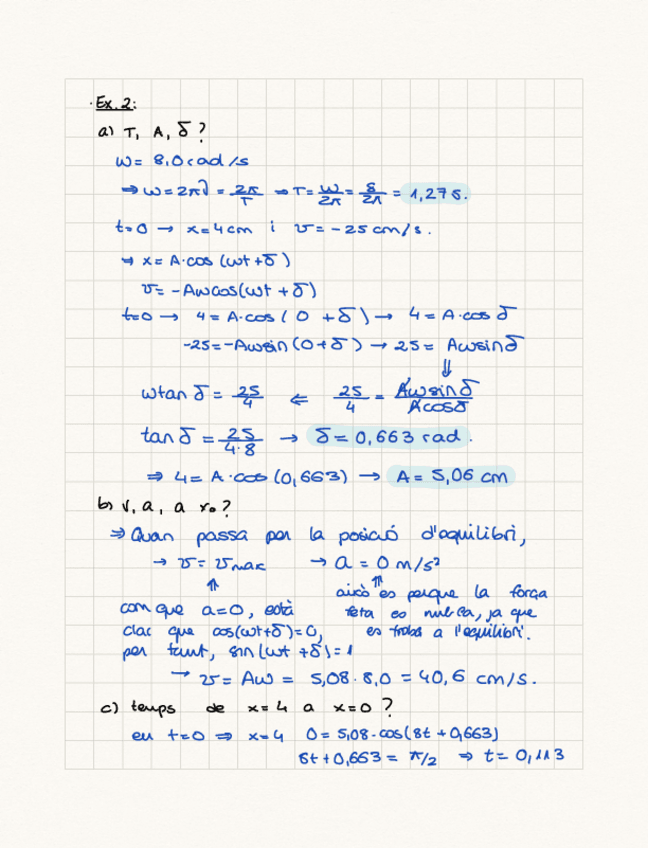 · Ex. 2:
a) T, A, δ ?
ω = 8,0 rad/s
⇒ ω = 2πν = 2π/T ⇒ T = ω/2π = 8/2π = 1,27 s.
t=0 → x = 4 cm i v = -25 cm/s.
⇒ x = A·cos (ωt + δ)
v = -Aωcos(ωt + δ)
t=0 → 4 = A·cos ( 0 + δ ) → 4 = A·cos δ
-25 = -Aωsin (0+δ) → 25 = Aωsinδ
⇓
ωtan δ = 25/4 ⇐ 25/4 = Aωsinδ/Acosδ
tan δ = 25/4·8 → δ = 0,663 rad.
⇒ 4 = A·cos (0,663) → A = 5,06 cm
b) v, a, a x₀ ?
⇒ Quan passa per la posició d'equilibri,
→ v = vmax → a = 0 m/s²
⇑ ⇑
com que a=0, està
clar que cos(ωt+δ)=0,
per tant, sin (ωt + δ) = 1
això es perque la força
feta es nul·la, ja que
es troba a l'equilibri.
→ v = Aω = 5,08 · 8,0 = 40,6 cm/s.
c) temps de x = 4 a x = 0 ?
en t=0 ⇒ x=4 0 = 5,08·cos(8t + 0,663)
8t + 0,663 = π/2 ⇒ t = 0,113